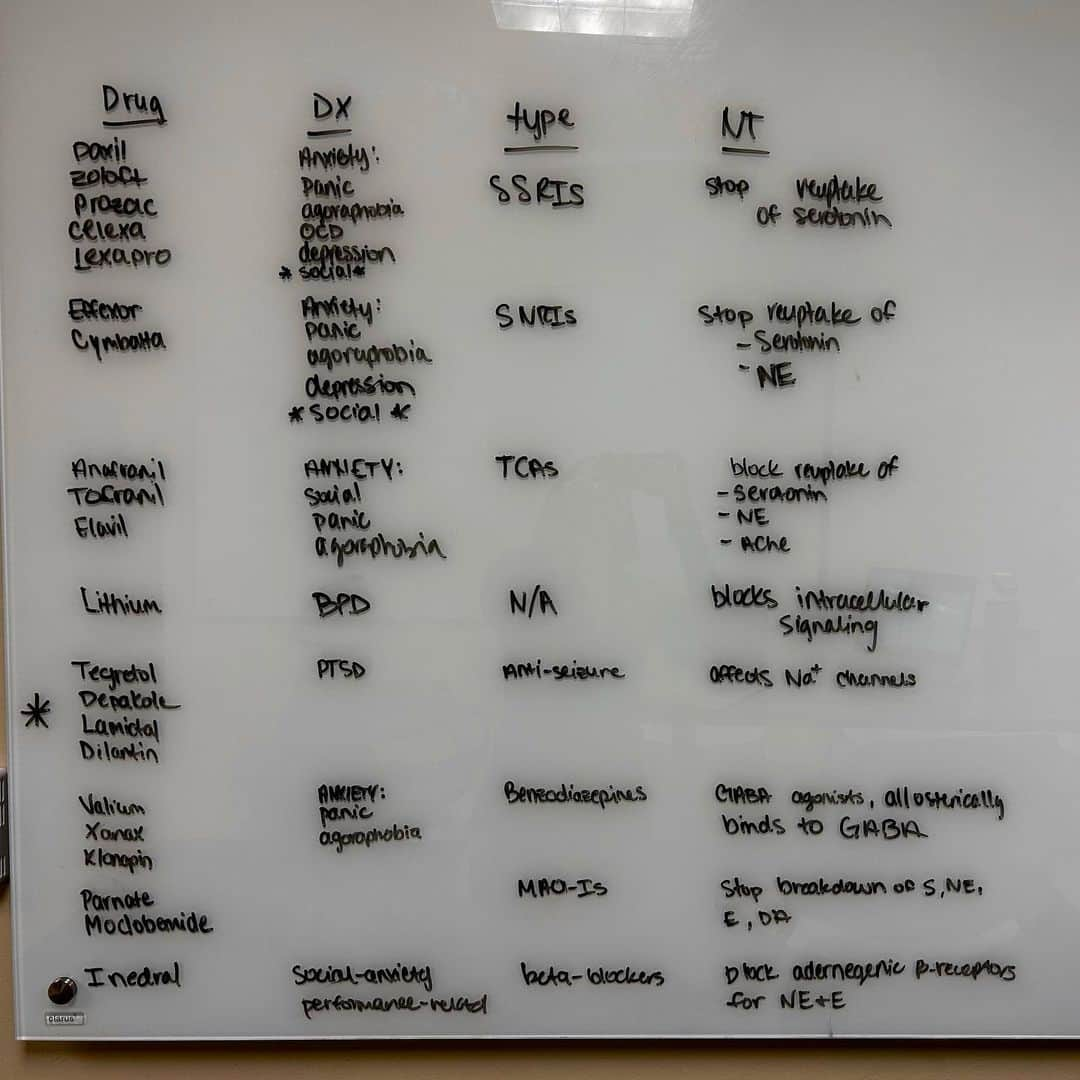 Drug DX type NT
Paxil
Zoloft
Prozac
Celexa
Lexapro
Anxiety:
panic
agoraphobia
OCD
depression
* social *
SSRIs
stop reuptake
of serotonin
Effexor
Cymbalta
Anxiety:
panic
agoraphobia
depression
* social *
SNRIs
Stop reuptake of
- Serotonin
- NE
Anafranil
Tofranil
Elavil
ANXIETY:
social
panic
agoraphobia
TCAs
block reuptake of
- serotonin
- NE
- Ache
Lithium
BPD
N/A
blocks intracellular
signaling
*
Tegretol
Depakote
Lamictal
Dilantin
PTSD
Anti-seizure
affects Na+ channels
Valium
Xanax
Klonopin
ANXIETY:
panic
agoraphobia
Benzodiazepines
GABA agonists, allosterically
binds to GABA
Parnate
Moclobemide
MAO-Is
Stop breakdown of S, NE,
E, DA
Inedral
Social-anxiety
performance-related
beta-blockers
block adernegenic β-receptors
for NE+E
clarus